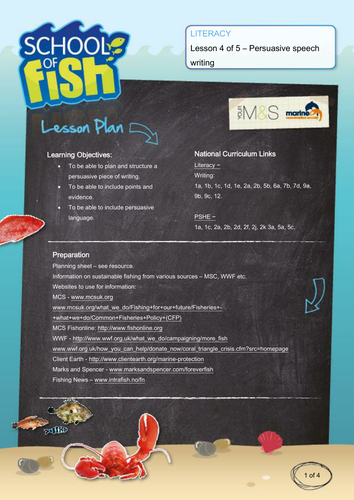 SCHOOL
OF
fish
LITERACY
Lesson 4 of 5 – Persuasive speech
writing
YOUR
M&S
marine
Lesson Plan
Learning Objectives:
• To be able to plan and structure a
persuasive piece of writing.
• To be able to include points and
evidence.
• To be able to include persuasive
language.
National Curriculum Links
Literacy –
Writing:
1a, 1b, 1c, 1d, 1e, 2a, 2b, 5b, 6a, 7b, 7d, 9a,
9b, 9c, 12.
PSHE –
1a, 1c, 2a, 2b, 2d, 2f, 2j, 2k 3a, 5a, 5c,
Preparation
Planning sheet – see resource.
Information on sustainable fishing from various sources – MSC, WWF etc.
Websites to use for information:
MCS - www.mcsuk.org
www.mcsuk.org/what_we_do/Fishing+for+our+future/Fisheries+-
+what+we+do/Common+Fisheries+Policy+(CFP)
MCS Fishonline: http://www.fishonline.org
WWF - http://www.wwf.org.uk/what_we_do/campaigning/more_fish
www.wwf.org.uk/how_you_can_help/donate_now/coral_triangle_crisis.cfm?src=homepage
Client Earth - http://www.clientearth.org/marine-protection
Marks and Spencer - www.marksandspencer.com/foreverfish
Fishing News – www.intrafish.no/fn
1 of 4